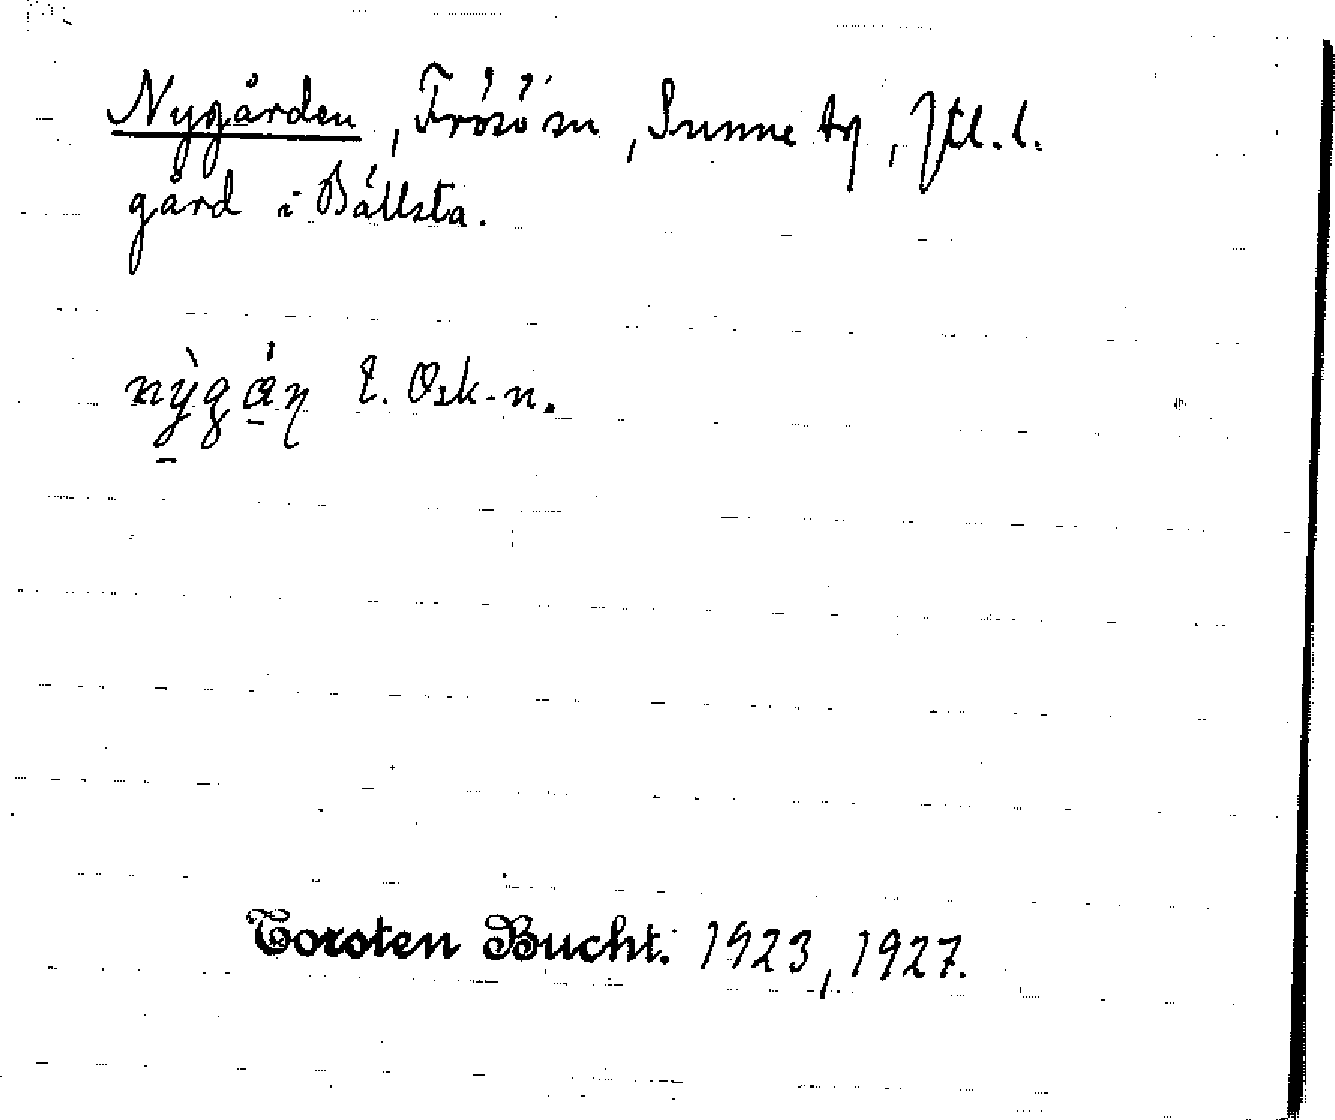 Nygården, Frösö sn, Sunne tg, Jtl. l.
gård i Bällsta.
nỳgáɳ E. Osk-n.
Torsten Bucht. 1923, 1927.